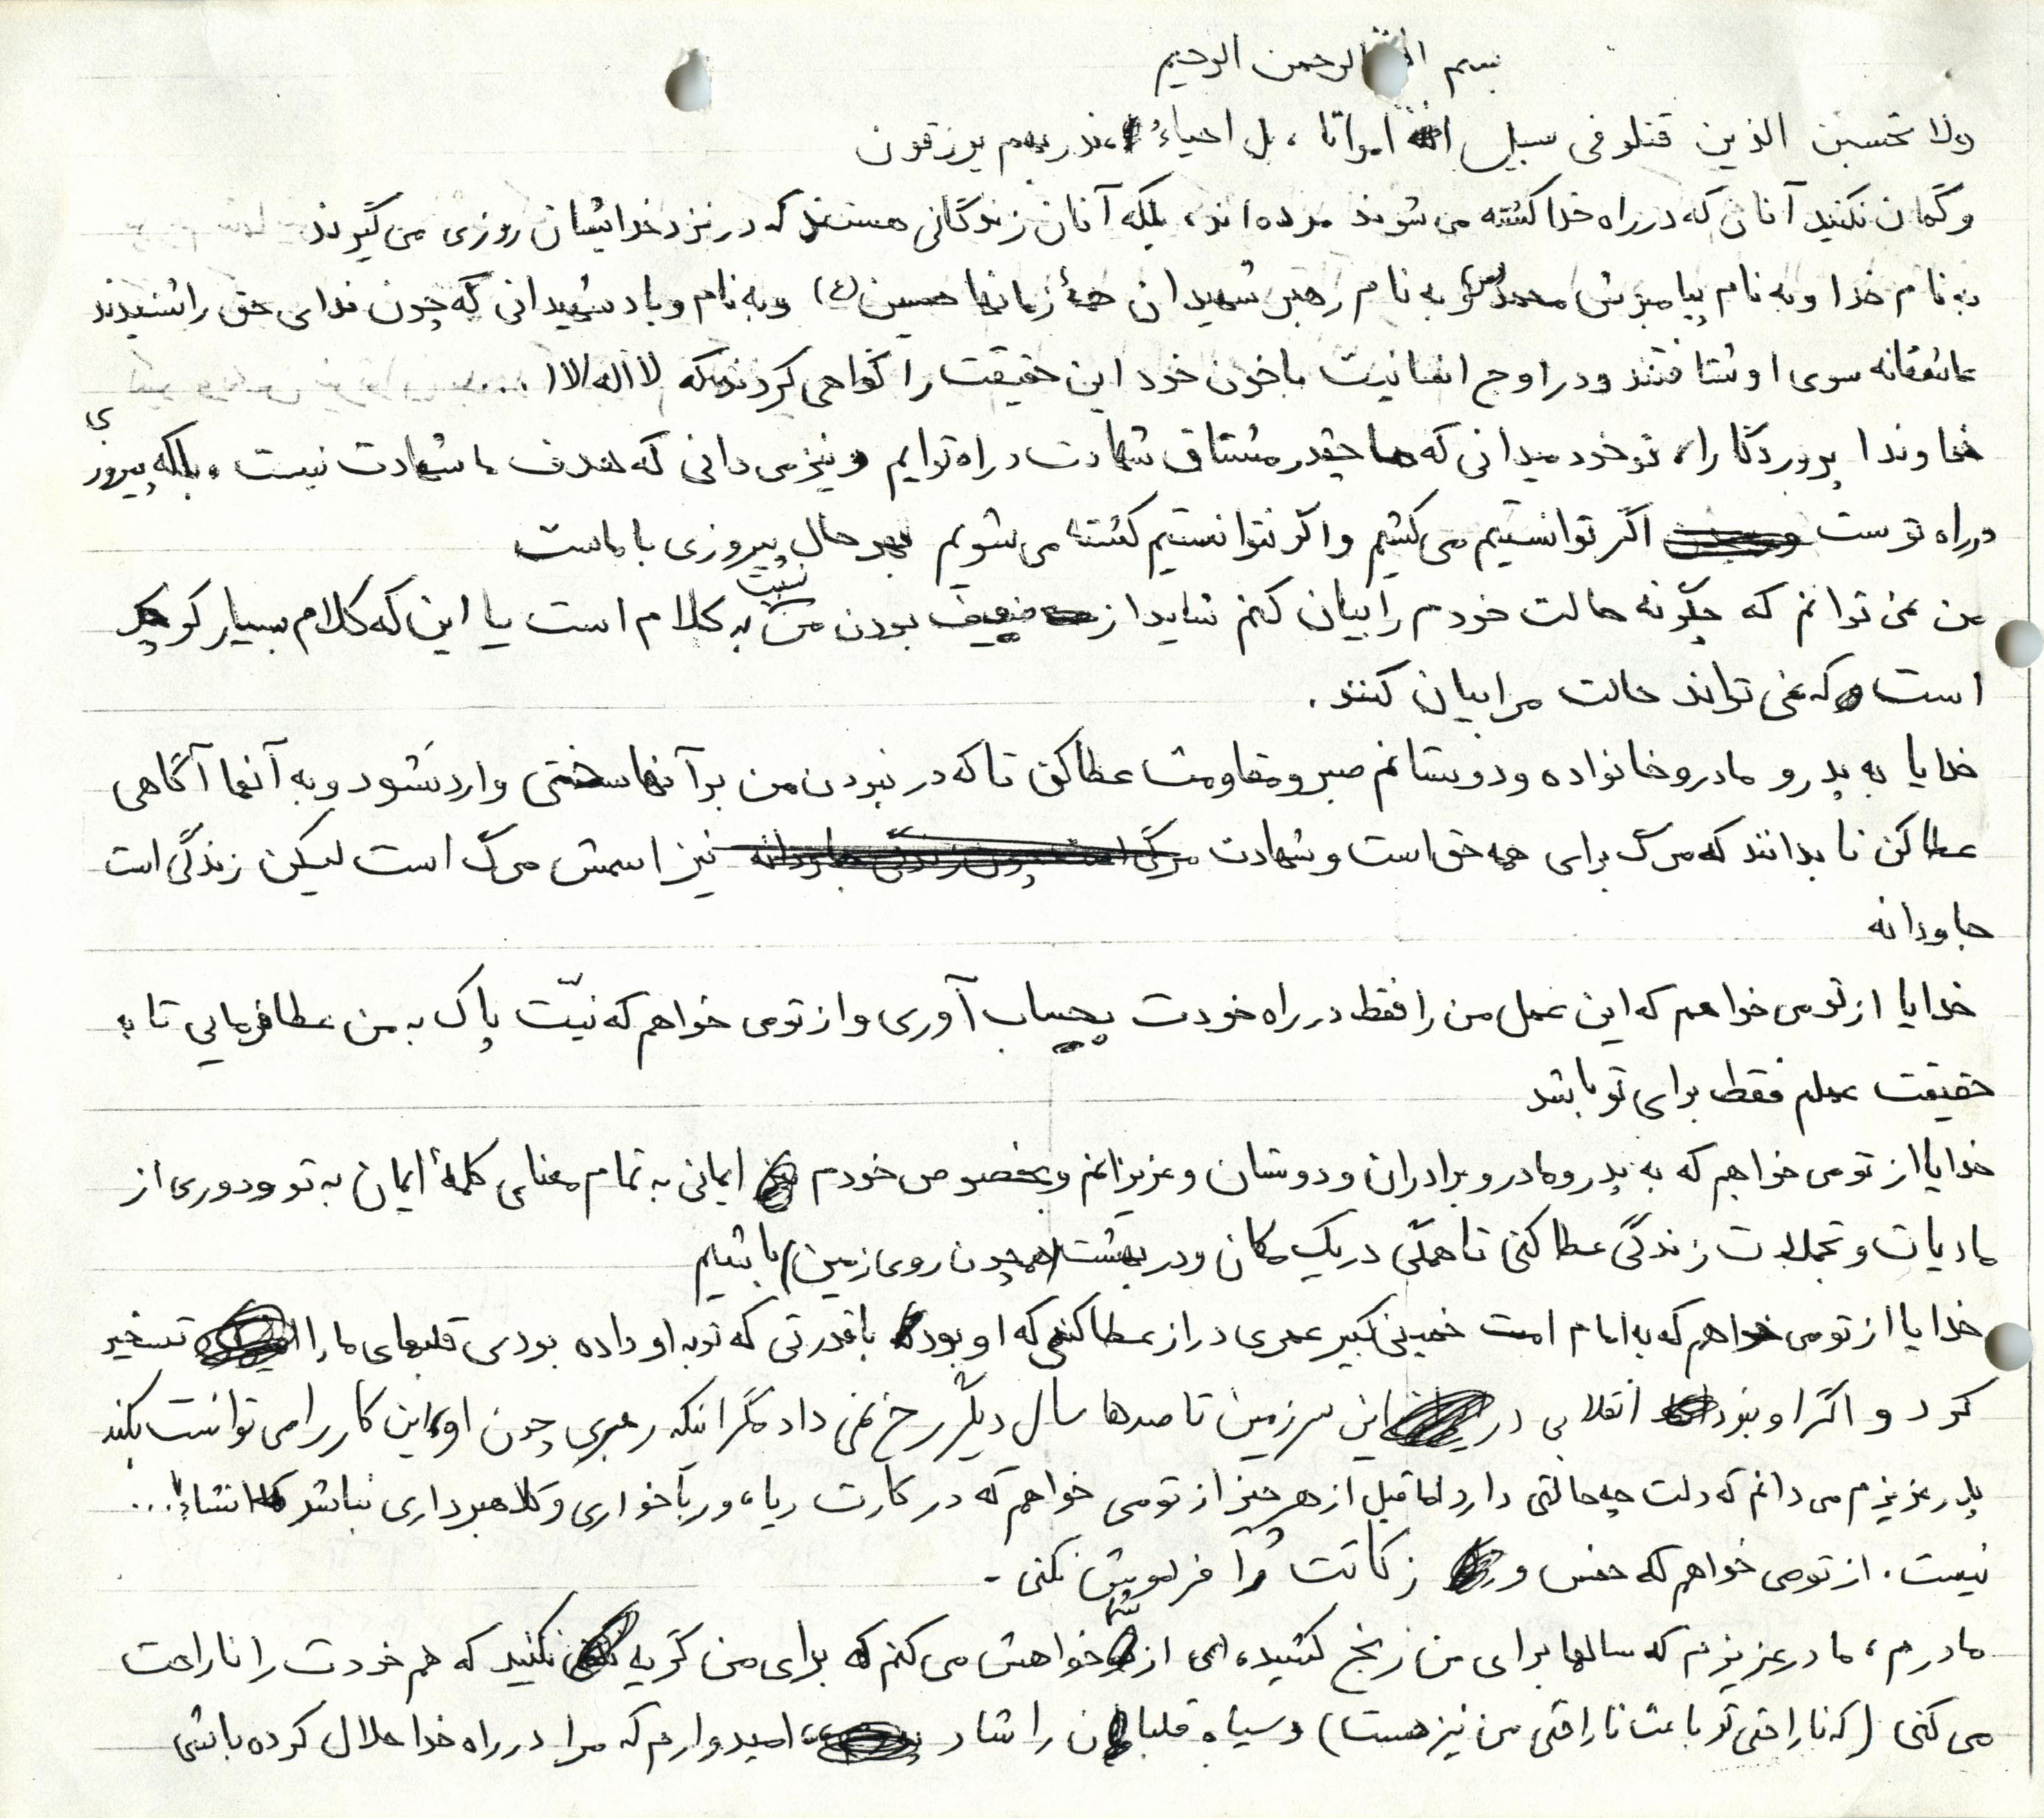 بسم الله الرحمن الرحیم
ولا تحسبن الذین قتلو فی سبیل الله امواتا ، بل احیاءُ عند ربهم یرزقون
و گمان نکنید آنان که در راه خدا کشته می شوند مرده اند، بلکه آنان زندگانی هستند که در نزد خدایشان روزی می گیرند
به نام خدا و به نام پیامبرش محمد (ص) و به نام رهبر شهیدان همهٔ زمانها حسین (ع) و به نام و یاد شهیدانی که چون ندای حق را شنیدند
عاشقانه سوی او شتافتند و در اوج انسانیت با خون خود این حقیقت را گواهی کردند که لا اله الا ...
خداوندا پروردگارا، تو خود میدانی که ما چقدر مشتاق شهادت در راه توایم و نیز می دانی که هدف ما شهادت نیست ، بلکه پیروزی
در راه توست اگر توانستیم می کشیم و اگر نتوانستیم کشته می شویم بهر حال پیروزی با ماست
من نمی توانم که چگونه حالت خودم را بیان کنم شاید از ضعیف بودن من نسبت به کلام است یا این که کلام بسیار کوچک
است که نمی تواند حالت مرا بیان کنند .
خدایا به پدر و مادر و خانواده و دوستانم صبر و مقاومت عطا کن تا که در نبودن من بر آنها سختی وارد نشود و به آنها آگاهی
عطا کن تا بدانند که مرگ برای همه حق است و شهادت نیز اسمش مرگ است لیکن زندگی است
جاودانه
خدایا از تو می خواهم که این عمل من را فقط در راه خودت بحساب آوری و از تو می خواهم که نیّت پاک به من عطا فرمایی تا به
حقیقت عملم فقط برای تو باشد
خدایا از تو می خواهم که به پدر و مادر و برادران و دوستان و عزیزانم و بخصوص خودم ایمانی به تمام معنای کلمهٔ ایمان به تو و دوری از
مادیات و تجملات زندگی عطا کنی تا همگی در یک مکان و در بهشت (همچون روی زمین) باشیم
خدایا از تو می خواهم که به امام امت خمینی کبیر عمری دراز عطا کنی که او بود که با قدرتی که تو به او داده بودی قلبهای ما را تسخیر
کرد و اگر او نبود انقلابی در این سرزمین تا صدها سال دیگر رخ نمی داد مگر اینکه رهبری چون او این کار را می توانست بکند
پدر عزیزم می دانم که دلت چه حالتی دارد اما قبل از هر چیز از تو می خواهم که در کارت ریا، و ربا خواری و کلاهبرداری نباشد که انشاء ا...
نیست . از تو می خواهم که خمس و زکاتت را فراموش نکنی .
مادرم ، مادر عزیزم که سالها برای من رنج کشیده ای از شما خواهش می کنم که برای من گریه نکنید که هم خودت را ناراحت
می کنی (که ناراحتی تو باعث ناراحتی من نیز هست) و سیاه قلبان را شاد امیدوارم که مرا در راه خدا حلال کرده باشی